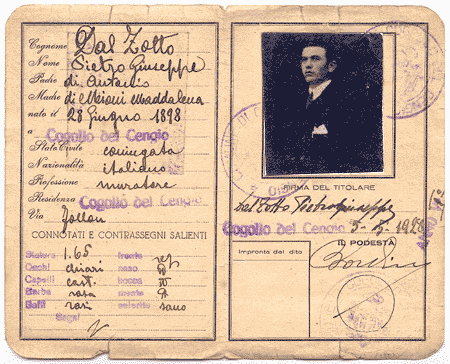 Cognome Dal Zotto
Nome Pietro Giuseppe
Padre di Antonio
Madre di Meioni Maddalena
nato il 28 Giugno 1898
a Cogollo del Cengio
Stato Civile coniugato
Nazionalità italiano
Professione muratore
Residenza Cogollo del Cengio
Via
CONNOTATI E CONTRASSEGNI SALIENTI
Statura 1.65 fronte reg
Occhi chiari naso
Capelli cast. bocca
Barba rasa mento
Baffi rasi colorito sano
Segni
FIRMA DEL TITOLARE
Dal Zotto Pietro Giuseppe
Cogollo del Cengio
Impronta del dito
IL PODESTÀ